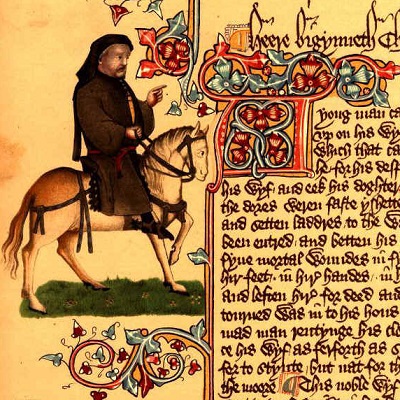 Heere bigynneth Ch
A yong man ca
vp on his wy
which that ca
he for his desp
his wyf and eek his doghter
the dores weren faste yshette
and setten laddres to the w
been entred and betten his
fyue mortal woundes in fy
hir feet in hir handes in h
and leften hir for deed and
tourned was in to his hous
mad man rentynge his clo
ce his wyf as ferforth as s
for to stynte but nat for th
the moore This noble wyf